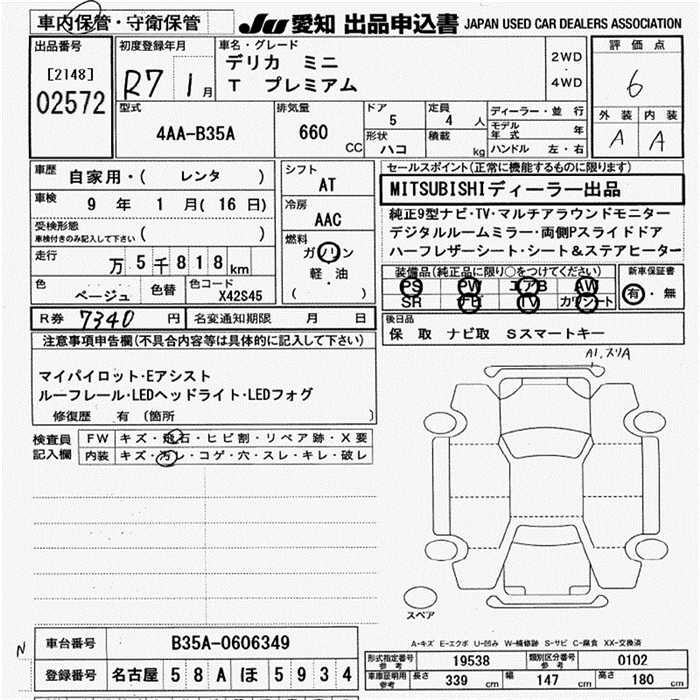 車内保管・守衛保管
JU 愛知 出品申込書 JAPAN USED CAR DEALERS ASSOCIATION
出品番号
[2148]
02572
初度登録年月
R7 1月
車名・グレード
デリカ ミニ
T プレミアム
2WD
・
4WD
評価点
6
外装 内装
A A
型式
4AA-B35A
排気量
660 CC
ドア
5
定員
4 人
形状
ハコ
積載
kg
ディーラー・並行
モデル年式 年
ハンドル 左・右
車歴
自家用・( レンタ )
車検
9 年 1 月( 16 日)
受検形態
車検付きのみ記入して下さい ( )
走行
万 5 千 8 1 8 km
色
ベージュ
色替
色コード
X42S45
シフト
AT
冷房
AAC
燃料
ガソリン
軽・油
( )
セールスポイント(正常に機能するものに限ります)
MITSUBISHIディーラー出品
純正9型ナビ・TV・マルチアラウンドモニター
デジタルルームミラー・両側Pスライドドア
ハーフレザーシート・シート＆ステアヒーター
装備品(純正品に限り○をつけてください)
PS PW エアB AW
SR TV
新車保証書
有・無
R券 7340 円 名変通知期限 月 日
後日品
保 取 ナビ取 Sスマートキー
注意事項申告欄(不具合内容等は具体的に記入して下さい)
マイパイロット・Eアシスト
ルーフレール・LEDヘッドライト・LEDフォグ
修復歴 有 〔箇所 〕
検査員記入欄
FW キズ・飛石・ヒビ割・リペア跡・X要
内装 キズ・汚レ・コゲ・穴・スレ・キレ・破レ
A1.スリA
スペア
A-キズ E-エクボ U-凹み W-補修跡 S-サビ C-腐食 XX-交換済
N
車台番号 B35A-0606349
登録番号 名古屋 5 8 A ほ 5 9 3 4
型式指定番号参考 19538 類別区分番号参考 0102
車庫証明用参考 長さ 339 cm 幅 147 cm 高さ 180 cm